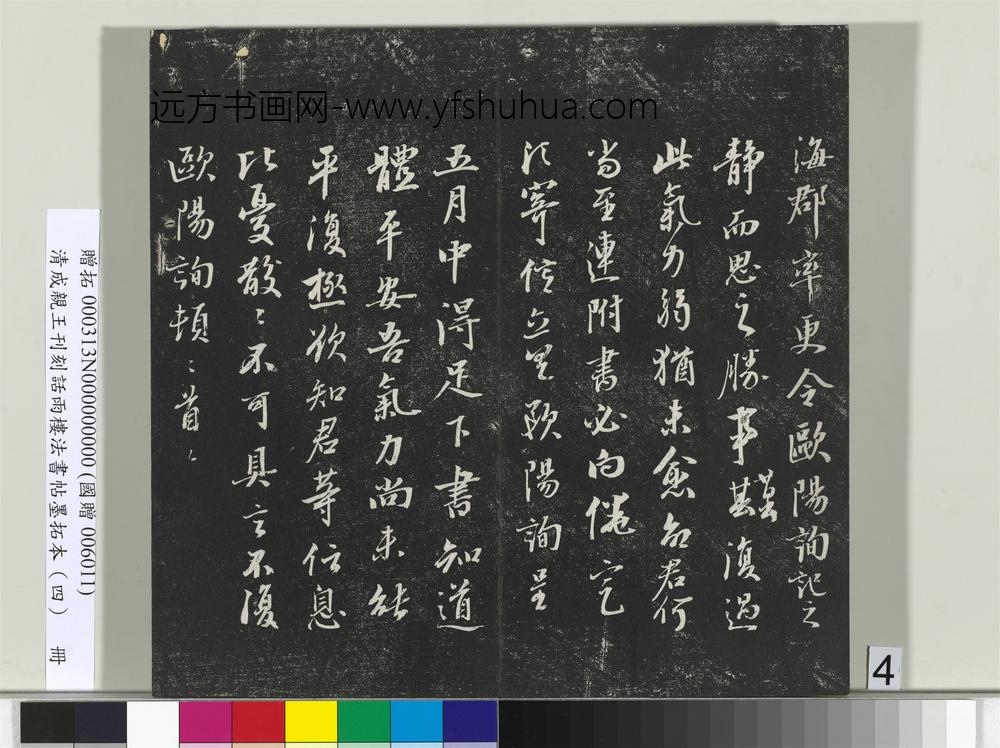 远方书画网-www.yfshuhua.com
海郡率更令歐陽詢記之
靜而思之勝事難復過
此氣力弱猶未愈而君何
當至速附書必向僊
寄信立具歐陽詢呈
五月中得足下書知道
體平安吾氣力尚未能
平復極欲知君等信息
比憂散〻不可具言不復
歐陽詢頓〻首〻
贈拓 000313N000000000 (國贈 006011)
清成親王刊刻詒雨樓法書帖墨拓本（四） 冊
4